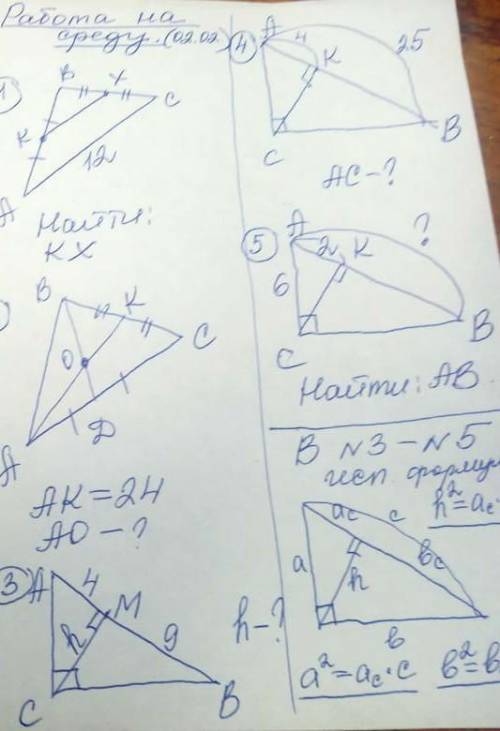 Работа на
среду. (02.02.)
1
B X C
K
12
A
Найти:
KX
B K C
O
A D
AK = 24
AO - ?
3 A 4 M
h 9
C B
h - ?
4 A 4 K 25
C B
AC - ?
5 A 2 K ?
6
C B
Найти: AB
В №3 - №5
исп. форму
h² = ac
ac c
a h bc
b
a² = ac · c b² = b